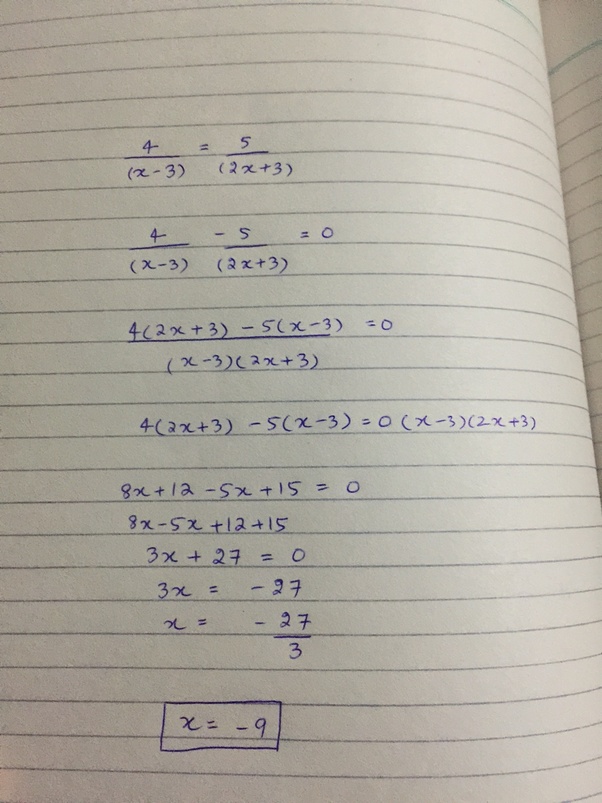 4/(x-3) = 5/(2x+3)
4/(x-3) - 5/(2x+3) = 0
4(2x+3) - 5(x-3)/(x-3)(2x+3) = 0
4(2x+3) - 5(x-3) = 0 (x-3)(2x+3)
8x+12 -5x+15 = 0
8x-5x+12+15
3x + 27 = 0
3x = -27
x = -27/3
x = -9